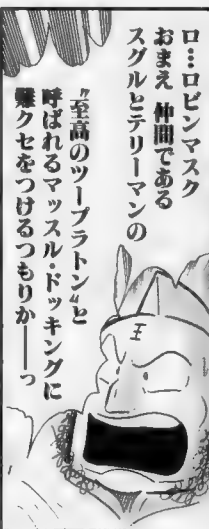 ロ…ロビンマスク
おまえ 仲間である
スグルとテリーマンの
〝至高のツープラトン〟と
呼ばれるマッスル・ドッキングに
難クセをつけるつもりか――っ
王